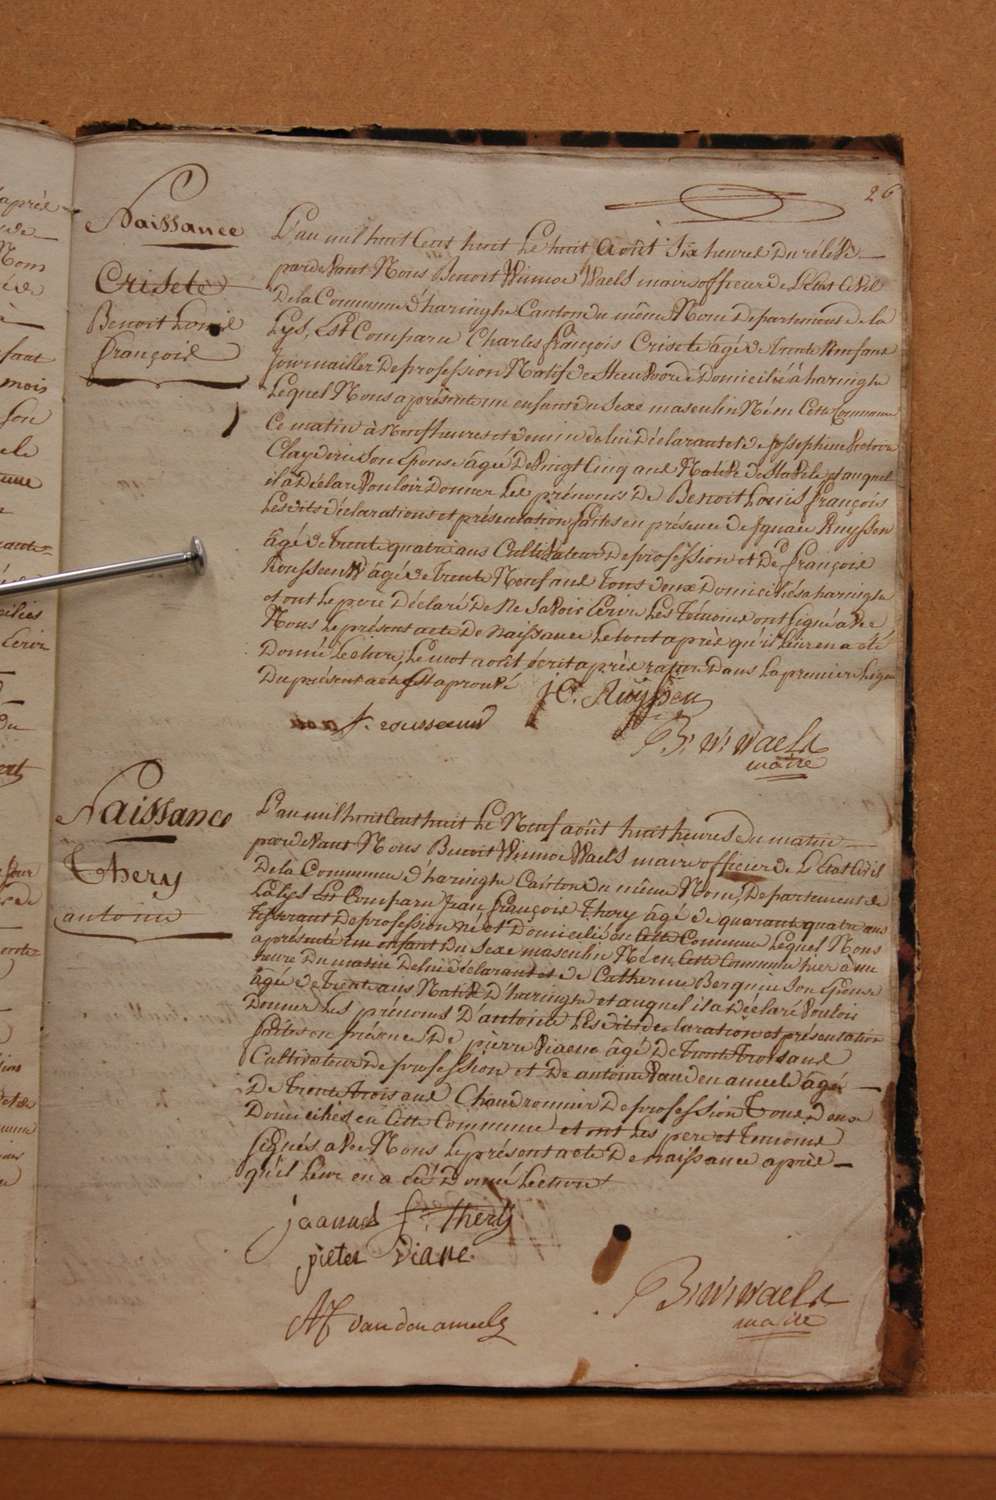 26
Naissance
Crisete
Benoit Louis
françois
L'an mil huit Cent huit Le huit Août Six heures du relevé
pardevant Nous Benoit Winnoc Waels maire officier de L'Etat Civil
De la Commune d'haringhe Canton du même Nom Departement de la
Lys, Est Comparu Charles françois Crisete âgé de trente Neuf ans
Journaillier De profession Natif de Domicilié à haringhe
Lequel Nous a présenté un enfant du Sexe masculin Né en Cette Commune
Ce matin à Neuf heures et demie de lui Déclarant et de Josephine
son Epouse âgée De Vingt Cinq ans Native de Stavele et auquel
il a Déclaré Vouloir Donner Les prénoms De Benoit Louis François
Lesdits déclarations et présentation faits en présence de Ignace Ruyssen
âgé de trente quatre ans Cultivateur De profession et De françois
Rousseeuw âgé de trente Neuf ans tous deux Domiciliés a haringhe
et ont Le pere Déclaré De Ne Savoir Ecrire Les témoins ont Signé avec
Nous Le présent acte De Naissance Le tout après qu'il Leur en a été
Donné Lecture, Le mot août écrit après rature Dans La premiere Ligne
Du présent acte Est aprouvé
Ruyssen
f. rousseeuw
B: W: Waels
maire
Naissance
Thery
antoine
L'an mil huit Cent huit Le Neuf août huit heures du matin
pardevant Nous Benoit Winnoc Waels maire officier de L'Etat Civil
De la Commune d'haringhe Canton du même Nom, Departement de
La Lys Est Comparu Jean françois Thery âgé de quarante quatre ans
Tisserant De profession né et Domicilié en Cette Commune Lequel Nous
a présenté un enfant Du Sexe masculin Né en Cette Commune hier à une
heure Du matin De lui Déclarant et de Catherine Berquin Son Epouse
âgée de trente ans Native D'haringhe et auquel il a déclaré Vouloir
Donner Les prénoms D'antoine Lesdits déclaration et présentation
faits en présence De pierre Viaene âgé De trente trois ans
Cultivateur De profession et De antoine Vanden ameele âgé
De trente trois ans Chaudronnier De profession Tous Deux
Domiciliés en Cette Commune et ont Les pere et témoins
Signés avec Nous Le présent acte De Naissance après
qu'il Leur en a été Donné Lecture
joannes fr. thery
pieter viane
vanden ameele
B: W: Waels
maire